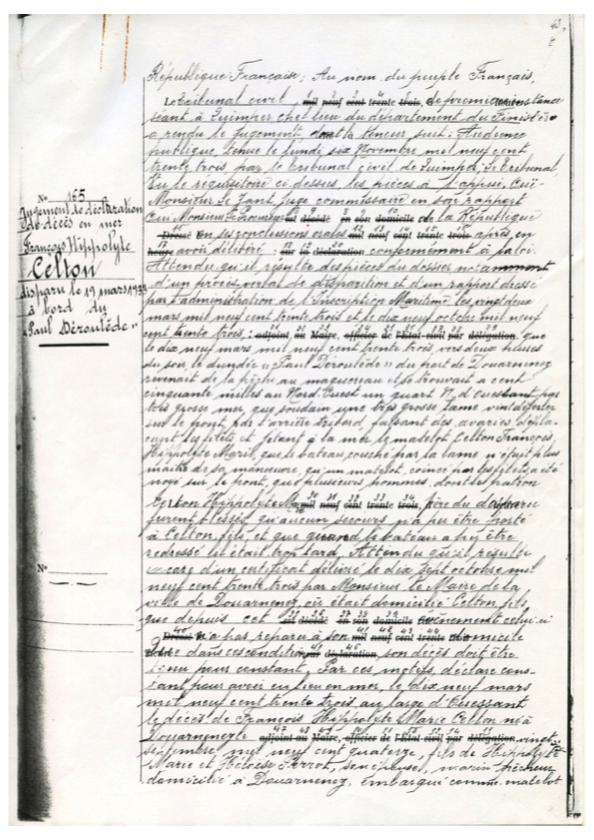 43,
République Française; Au nom du peuple Français,
Le tribunal civil, mil neuf cent trente trois, de première instance
séant à Quimper chef lieu du département du Finistère
a rendu le jugement, dont la teneur suit: Audience
publique, tenue le lundi six Novembre mil neuf cent
trente trois, par le tribunal civil de Quimper, Le tribunal,
Vu le réquisitoire ci-dessus, les pièces à l'appui, Ouï
Monsieur Le Jant, juge commissaire en son rapport
Ouï Monsieur le Procureur est décédé en son domicile de la République
Dressé en ses conclusions orales mil neuf cent trente trois, après en
heure avoir délibéré sur la déclaration conformément à la loi.
Attendu qu'il résulte des pièces du dossier notamment
d'un procès verbal de disparition et d'un rapport dressé
par l'administration de l'Inscription Maritime les vingt deux
mars mil neuf cent trente trois et le dix neuf octobre mil neuf
cent trente trois, adjoint au Maire, officier de l'Etat-civil par délégation, que
le dix neuf mars mil neuf cent trente trois, vers deux heures
du soir, le dundée "Paul Déroulède" du port de Douarnenez
revenait de la pêche au maquereau et se trouvait à cent
cinquante milles au Nord-Ouest un quart N. d'ouessant, par
très grosse mer, que soudain une très grosse lame vint déferler
sur le pont, par l'arrière tribord, faisant des avaries, dépla-
çant les filets et jetant à la mer le matelot Celton François,
Hippolyte Marie, que le bateau, couché par la lame n'était plus
maître de sa manœuvre, qu'un matelot, coincé par les filets, a été
noyé sur le pont, que plusieurs hommes, dont le patron
Celton Hippolyte Marie mil neuf cent trente trois, père du disparu
furent blessés, qu'aucun secours n'a pu être porté
à Celton fils, et que quand le bateau a pu être
redressé il était trop tard, Attendu qu'il résulte
encore d'un certificat délivré le dix sept octobre mil
neuf cent trente trois par Monsieur le Maire de la
ville de Douarnenez, où était domicilié Celton fils,
que depuis cet est décédé en son domicile évènement celui-ci
Dressé n'a pas reparu à son mil neuf cent trente domicile
que dans ces conditions sur déclaration, son décès doit être
tenu pour constant, Par ces motifs, déclare cons-
tant pour avoir eu lieu en mer, le dix neuf mars
mil neuf cent trente trois au large d'Ouessant
le décès de François Hippolyte Marie Celton né à
Douarnenez le adjoint au Maire, officier de l'Etat-civil par délégation, vingt
septembre mil neuf cent quatorze, fils de Hippolyte
Marie et Héloïse Perrot, son épouse, marin pêcheur
domicilié à Douarnenez, embarqué comme matelot
No 165
Jugement de déclaration
de décès en mer
François Hippolyte
Celton
disparu le 19 mars 1933
à bord du
"Paul Déroulède"
No